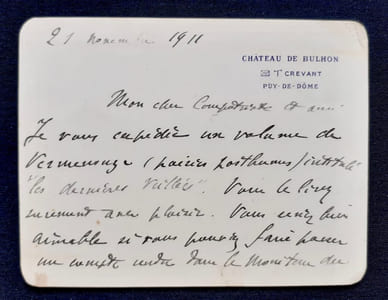 21 novembre 1911
CHÂTEAU DE BULHON
✉ T CREVANT
PUY-DE-DÔME
Mon cher Compatriote et ami
Je vous expédie un volume de
Vermenouze (poésies posthumes) intitulé
"les dernières Veillées". Vous le lirez
surement avec plaisir. Vous seriez bien
aimable si vous pouviez faire passer
un compte rendu dans le Moniteur du